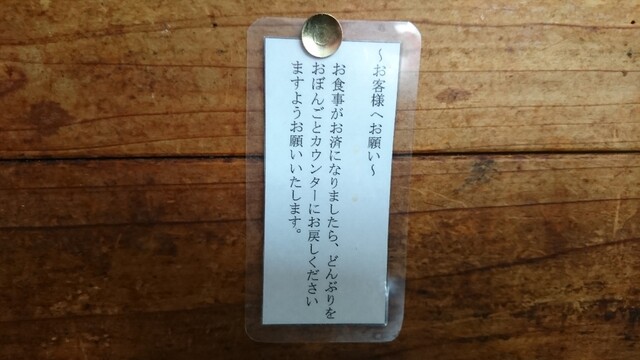 ～お客様へお願い～
お食事がお済になりましたら、どんぶりを
おぼんごとカウンターにお戻しください
ますようお願いいたします。